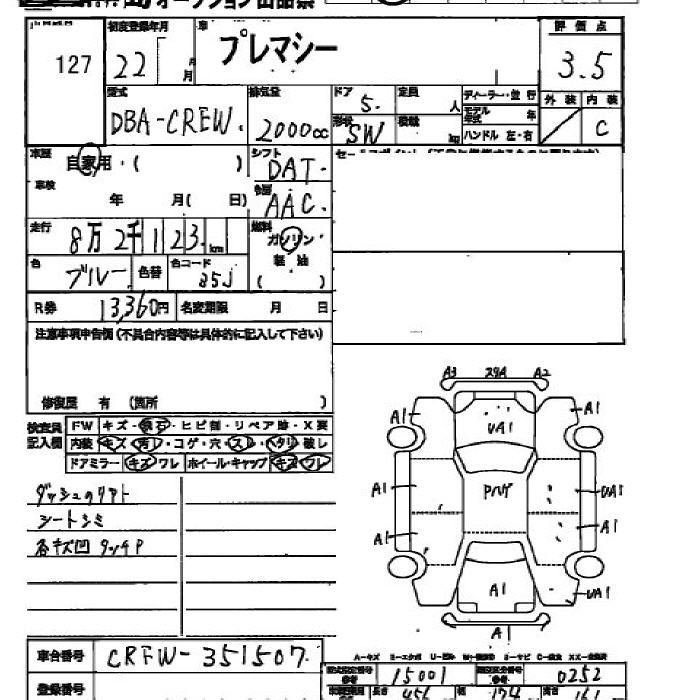 オークション出品票
127
初度登録年月
22 年 月
車
プレマシー
評価点
3.5
型式
DBA-CREW
排気量
2000cc
ドア
5
形状
SW
定員 人
積載 kg
ディーラー・並行
モデル年式 年
ハンドル 左・右
外装 内装
C
車歴
自家用・( )
シフト
DAT
車検
年 月( 日)
冷房
AAC
走行
8万2千123km
燃料
ガソリン・
軽油
( )
色
ブルー
色替
色コード
35J
R券
13,360円
名変期限 月 日
注意事項申告欄(不具合内容等は具体的に記入して下さい)
修復歴 有 (箇所 )
検査員
記入欄
FW キズ・飛石・ヒビ割・リペア跡・X要
内装 キズ・汚レ・コゲ・穴・スレ・ヘタリ・破レ
ドアミラー キズ・ワレ ホイール・キャップ キズ・ワレ
シートシミ
各キズ凹 タッチP
A3 29A A2
A1 UA1 A1
A1 Pルーフ UA1
A1 A1
A1 UA1
A1
A-キズ
車台番号
CREW-351507
登録番号
型式指定番号
15001
類別区分番号
0252
長さ 456
幅 174
高さ 161